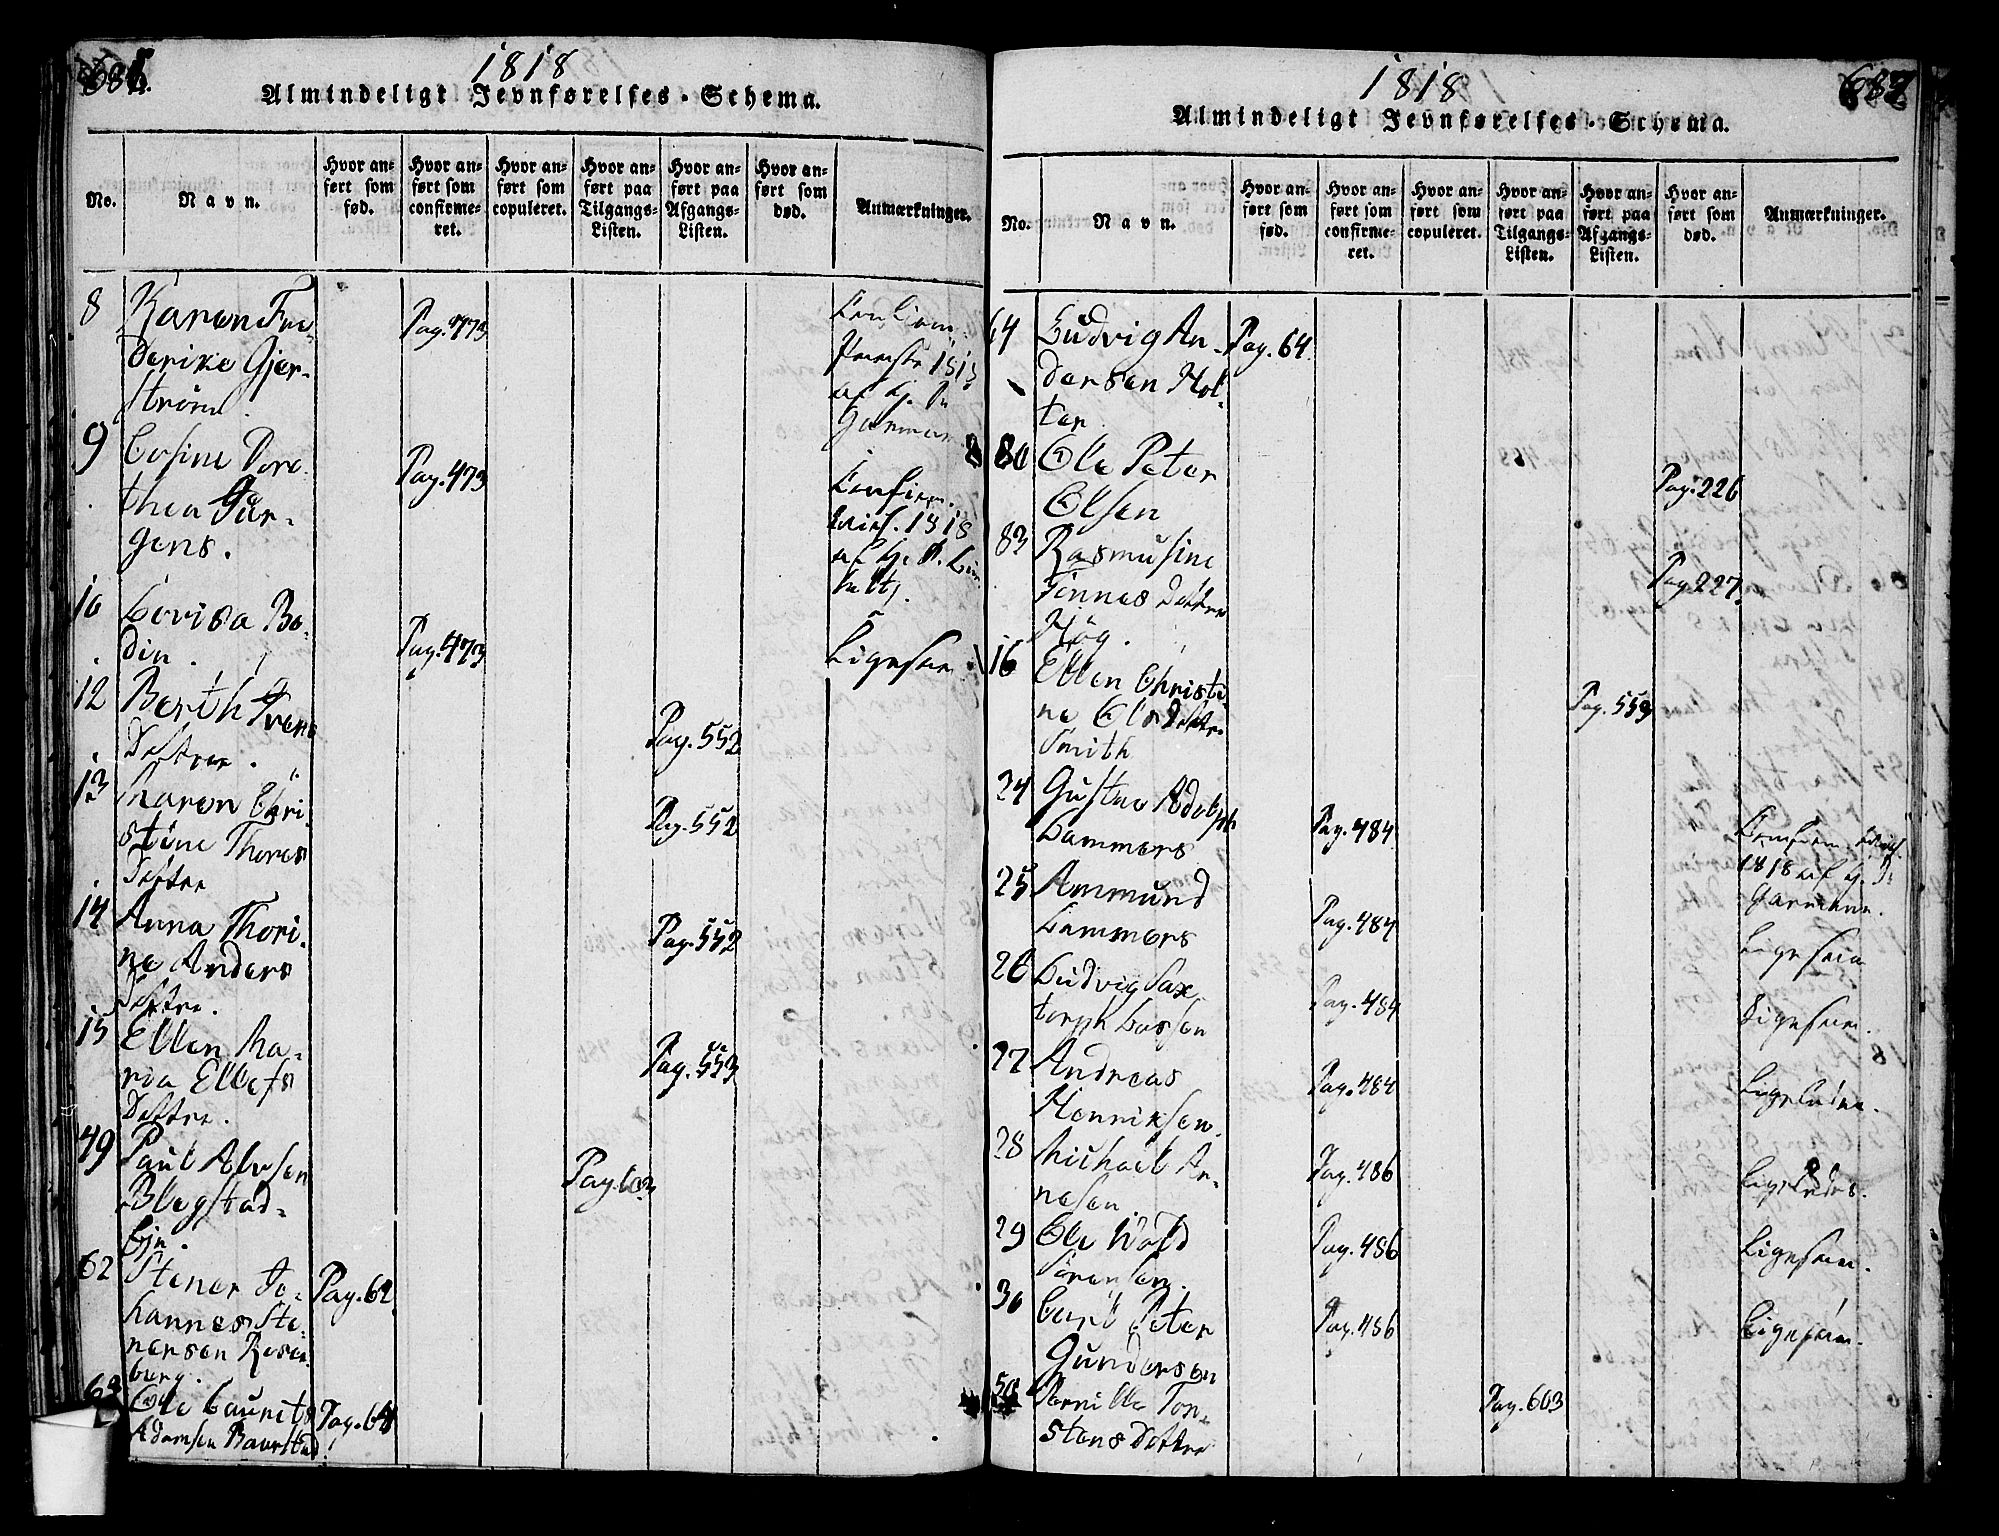 1818
Almindeligt Jevnførelses-Schema.
No.
Navn.
Hvor an-
ført som
fød.
Hvor an-
ført som
confirme-
ret.
Hvor an-
ført som
copuleret.
Hvor an-
ført paa
Tilgangs-
Listen.
Hvor an-
ført paa
Afgangs-
Listen.
Hvor an-
ført som
død.
Anmærkninger.
8 Karen Fre-
derike Gjer- Pag. 473
strøm.
1818
af H. Pr
Garmann
9
Doro-
thea Jür- Pag. 473
gens.
1818
af H. P.
10 Lovisa Bo-
din. Pag. 473 Ligesaa
12 Berth
Dotter. Pag. 552
13 Maren Chri-
stine Thores Pag. 552
Dotter
14 Anna Thori-
ne Anders Pag. 552
Dotter.
15 Ellen Ma-
ria Ellefs Pag. 553
Dotter.
49 Paul Alvsen
Blegstad- Pag. 603
Eje.
62 Stener Jo-
hannes Ste- Pag. 62.
nersen Rosen-
berg.
63 Ole Laurits Pag. 64
Adamsen
1818
687
Almindeligt Jevnførelses-Schema.
No.
Navn.
Hvor an-
ført som
fød.
Hvor an-
ført som
confirme-
ret.
Hvor an-
ført som
copuleret.
Hvor an-
ført paa
Tilgangs-
Listen.
Hvor an-
ført paa
Afgangs-
Listen.
Hvor an-
ført som
død.
Anmærkninger.
64 Ludvig An- Pag. 64.
dersen Hol-
ter
80 Ole Peter
Olsen Pag. 226
83 Rasmusine
Finnes Dotter Pag. 227.
Høg.
16 Ellen Christi-
ne Ols Dotter Pag. 553
Smith
24 Gustav Adolph
Lammers Pag. 484
1818 af H. Pr
Garmann.
25 Ammund
Lammers Pag. 484 Ligesaa
26 Ludvig Sax-
torph Lassen Pag. 484 Ligesaa.
27 Andreas
Henriksen. Pag. 484 Ligeledes.
28 Michael Ar-
nesen Pag. 486 Ligeledes.
29 Ole Wold
Sørensen. Pag. 486 Ligesaa.
30 Carl Peter
Gundersen Pag. 486 Ligesaa.
50 Pernille Tor-
stens Dotter Pag. 603